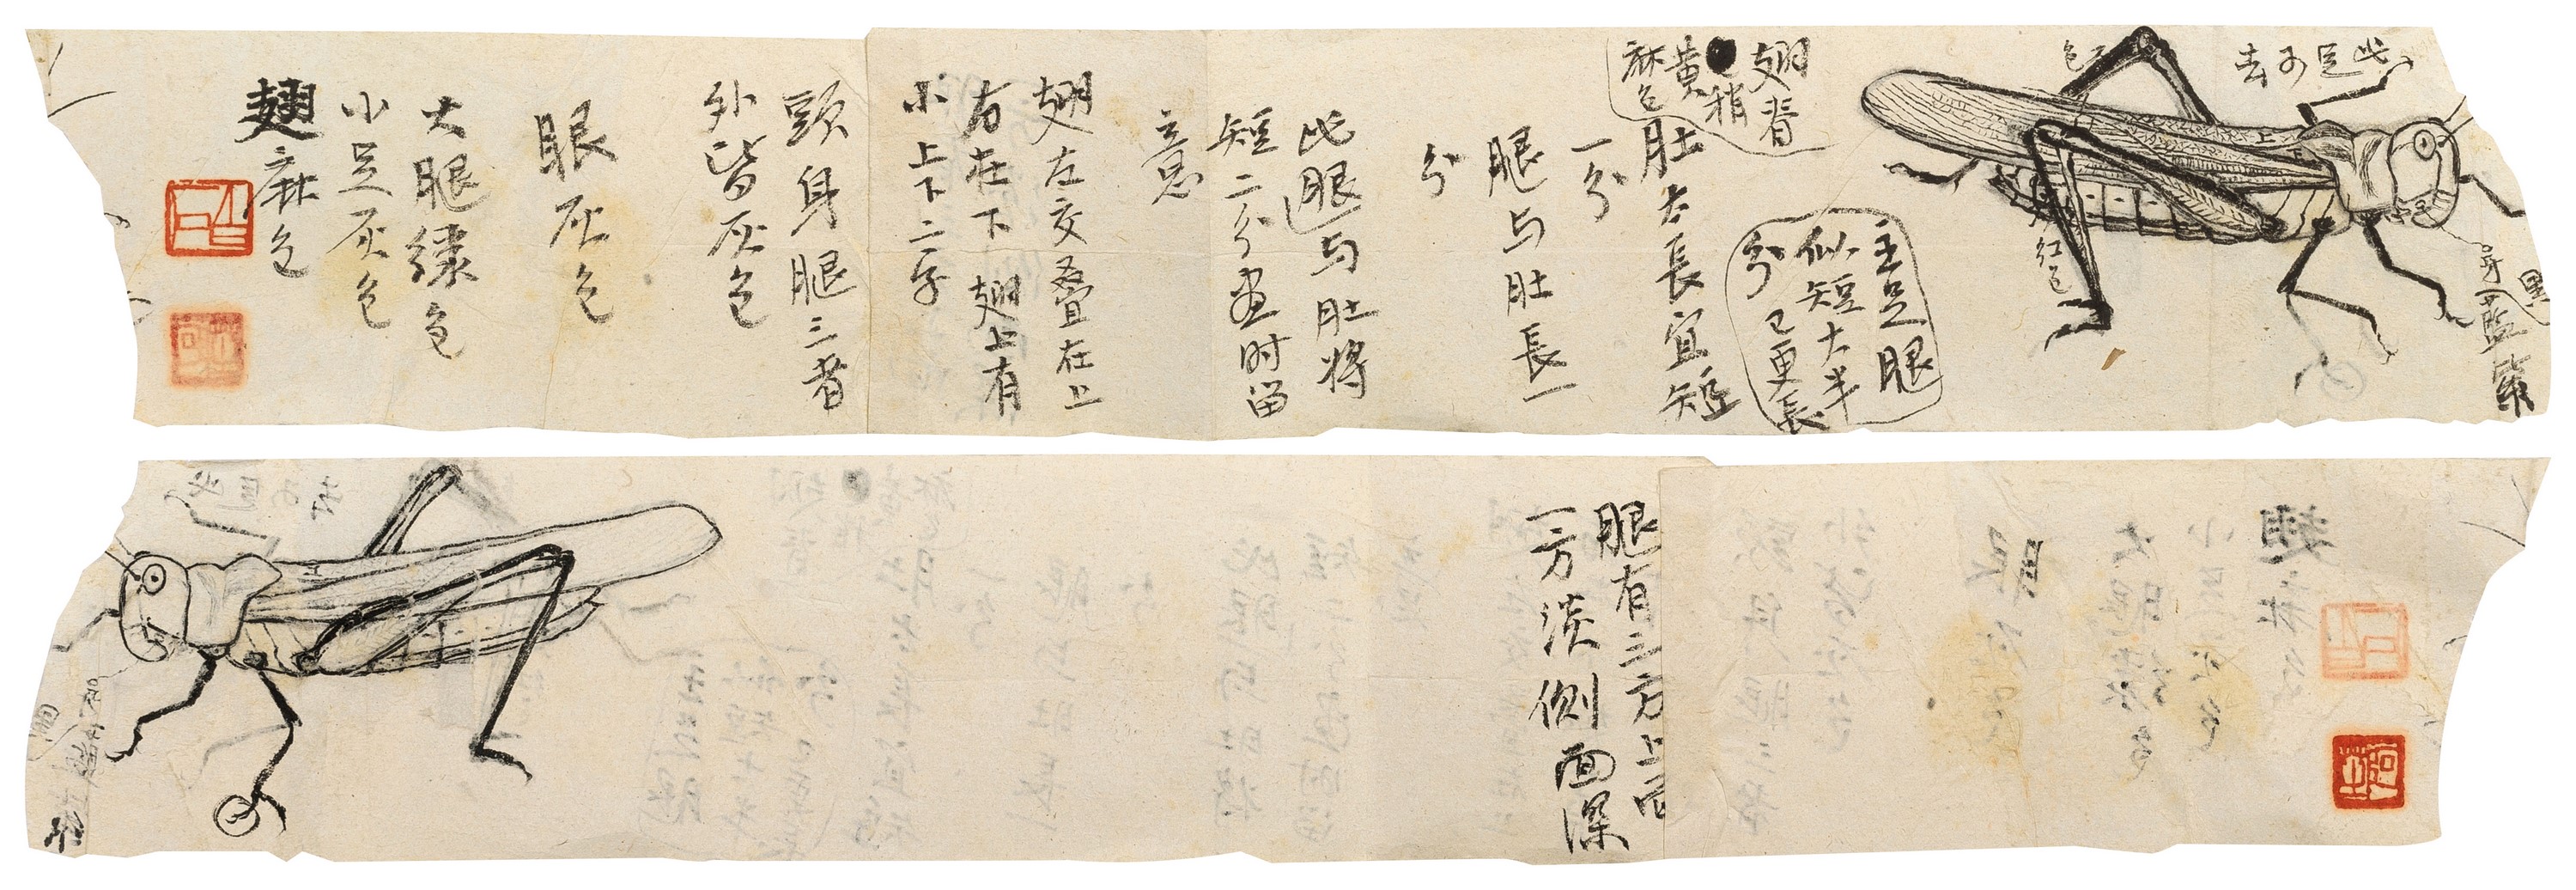 此足可去
翅背
稍
黄
麻色
红色
黑
蓝
主足腿
似短大半
分 已更長
肚太長宜短
一分
腿与肚長一
分
此腿与肚将
短二分画时留
意
翅左交叠在上
右在下 翅上有
小上下二字
頭身腿三者
外皆灰色
眼灰色
大腿绿色
小足灰色
翅麻色
上
下
腿有三方上
一方淡侧面深
上